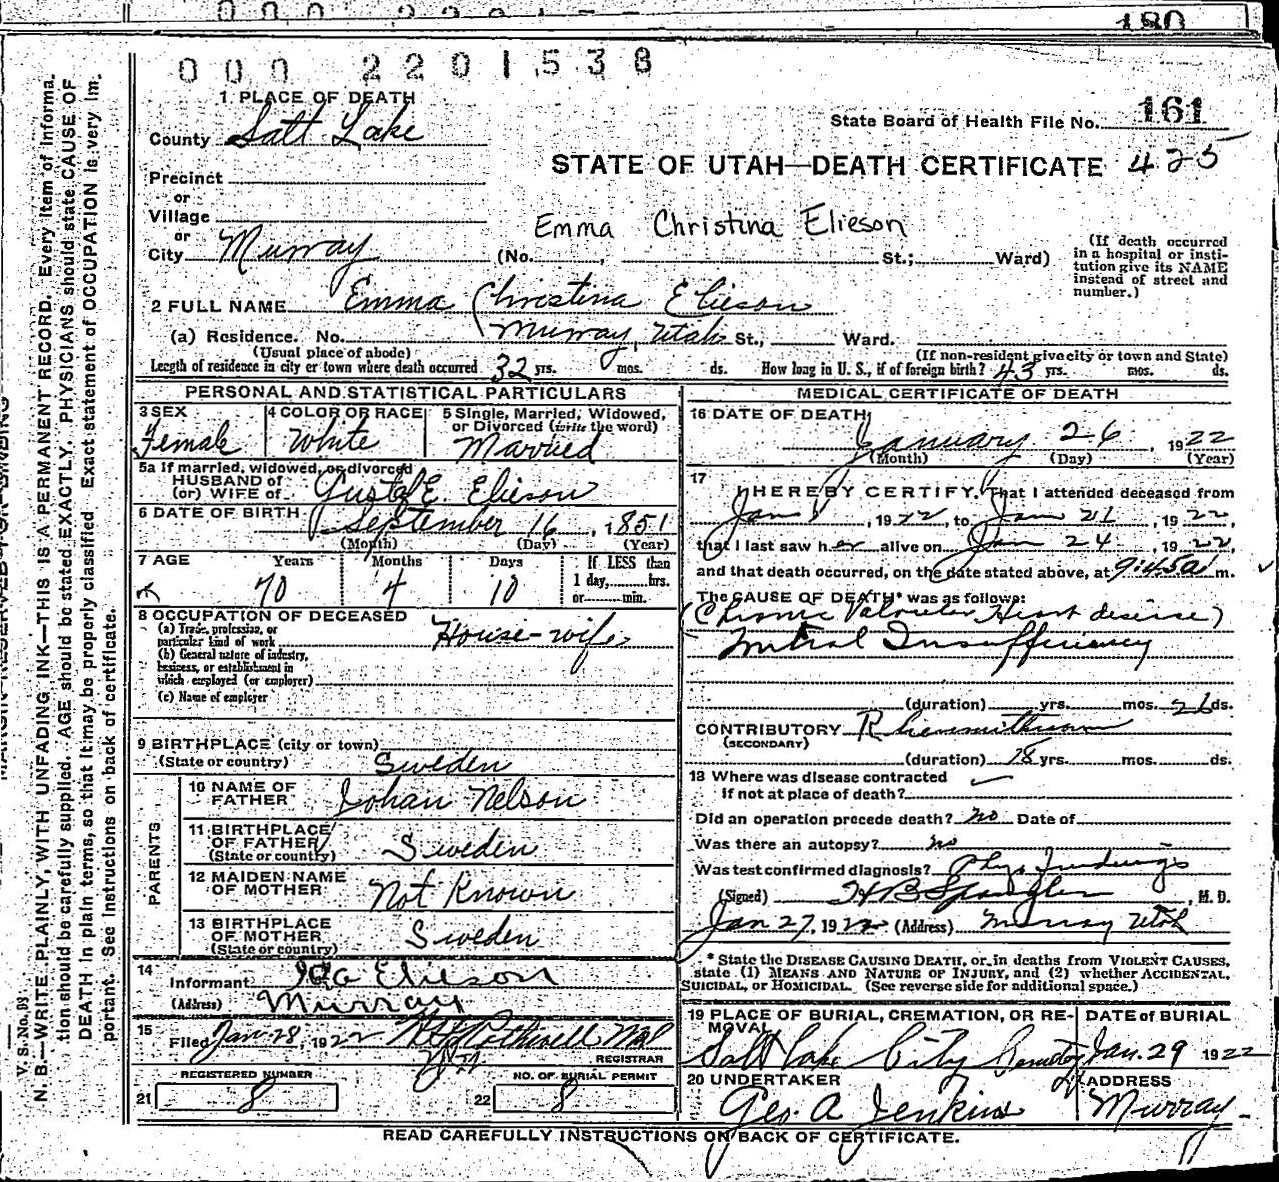 180
000 2201538
1 PLACE OF DEATH
County Salt Lake
State Board of Health File No. 161
STATE OF UTAH—DEATH CERTIFICATE 425
Precinct
or
Village
or
City Murray
Emma Christina Elieson
(No. , St.; Ward)
(If death occurred in a hospital or institution give its NAME instead of street and number.)
2 FULL NAME Emma Christina Elieson
(a) Residence. No. Murray, Utah St., Ward.
(Usual place of abode)
(If non-resident give city or town and State)
Length of residence in city or town where death occurred 32 yrs. mos. ds. How long in U. S., if of foreign birth? 43 yrs. mos. ds.
PERSONAL AND STATISTICAL PARTICULARS
3 SEX
Female
4 COLOR OR RACE
White
5 Single, Married, Widowed, or Divorced (write the word)
Married
5a If married, widowed, or divorced
HUSBAND of
(or) WIFE of Gustaf E. Elieson
6 DATE OF BIRTH September 16, 1851
(Month) (Day) (Year)
7 AGE Years Months Days
70 4 10
If LESS than
1 day, hrs.
or min.
8 OCCUPATION OF DECEASED
(a) Trade, profession, or
particular kind of work House-wife
(b) General nature of industry,
business, or establishment in
which employed (or employer)
(c) Name of employer
9 BIRTHPLACE (city or town)
(State or country) Sweden
PARENTS
10 NAME OF FATHER Johan Nelson
11 BIRTHPLACE OF FATHER
(State or country) Sweden
12 MAIDEN NAME OF MOTHER Not Known
13 BIRTHPLACE OF MOTHER
(State or country) Sweden
14
Informant Ida Elieson
(Address) Murray
15
Filed Jan. 28, 1922
REGISTRAR
REGISTERED NUMBER
21 8
NO. OF BURIAL PERMIT
22 8
MEDICAL CERTIFICATE OF DEATH
16 DATE OF DEATH
January 26, 1922
(Month) (Day) (Year)
17
I HEREBY CERTIFY, That I attended deceased from
Jan 1, 1922, to Jan 21, 1922,
that I last saw her alive on Jan 24, 1922,
and that death occurred, on the date stated above, at 9:45a m.
The CAUSE OF DEATH* was as follows:
(Chronic Valvular Heart disease)
Mitral Insufficiency
(duration) yrs. mos. 26 ds.
CONTRIBUTORY Rheumatism
(SECONDARY)
(duration) 18 yrs. mos. ds.
18 Where was disease contracted
If not at place of death?
Did an operation precede death? no Date of
Was there an autopsy? no
Was test confirmed diagnosis? Phys. Findings
(Signed) H B Spangler, M. D.
Jan 27, 1922 (Address) Murray Utah
* State the DISEASE CAUSING DEATH, or in deaths from VIOLENT CAUSES,
state (1) MEANS AND NATURE OF INJURY, and (2) whether ACCIDENTAL,
SUICIDAL, or HOMICIDAL. (See reverse side for additional space.)
19 PLACE OF BURIAL, CREMATION, OR REMOVAL
Salt Lake City Cemetery
DATE OF BURIAL
Jan. 29 1922
20 UNDERTAKER
Geo. A Jenkins
ADDRESS
Murray
READ CAREFULLY INSTRUCTIONS ON BACK OF CERTIFICATE.
V. S. No. B
N. B.—WRITE PLAINLY, WITH UNFADING INK—THIS IS A PERMANENT RECORD. Every item of informa-
tion should be carefully supplied. AGE should be stated EXACTLY. PHYSICIANS should state CAUSE OF
DEATH in plain terms, so that it may be properly classified. Exact statement of OCCUPATION is very im-
portant. See instructions on back of certificate.